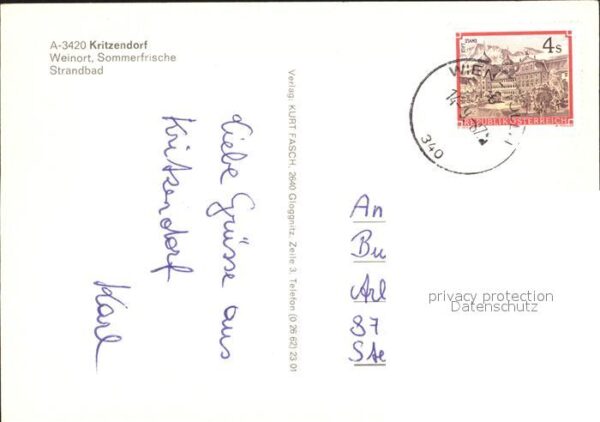 A-3420 Kritzendorf
Weinort, Sommerfrische
Strandbad
Verlag: KURT FASCH, 2640 Gloggnitz, Zeile 3, Telefon (0 26 62) 23 01
4 S
REPUBLIK ÖSTERREICH
WIEN
340
Liebe Grüsse aus
Kritzendorf
Karl
An
Bu
Arl
87
Ste
privacy protection
Datenschutz